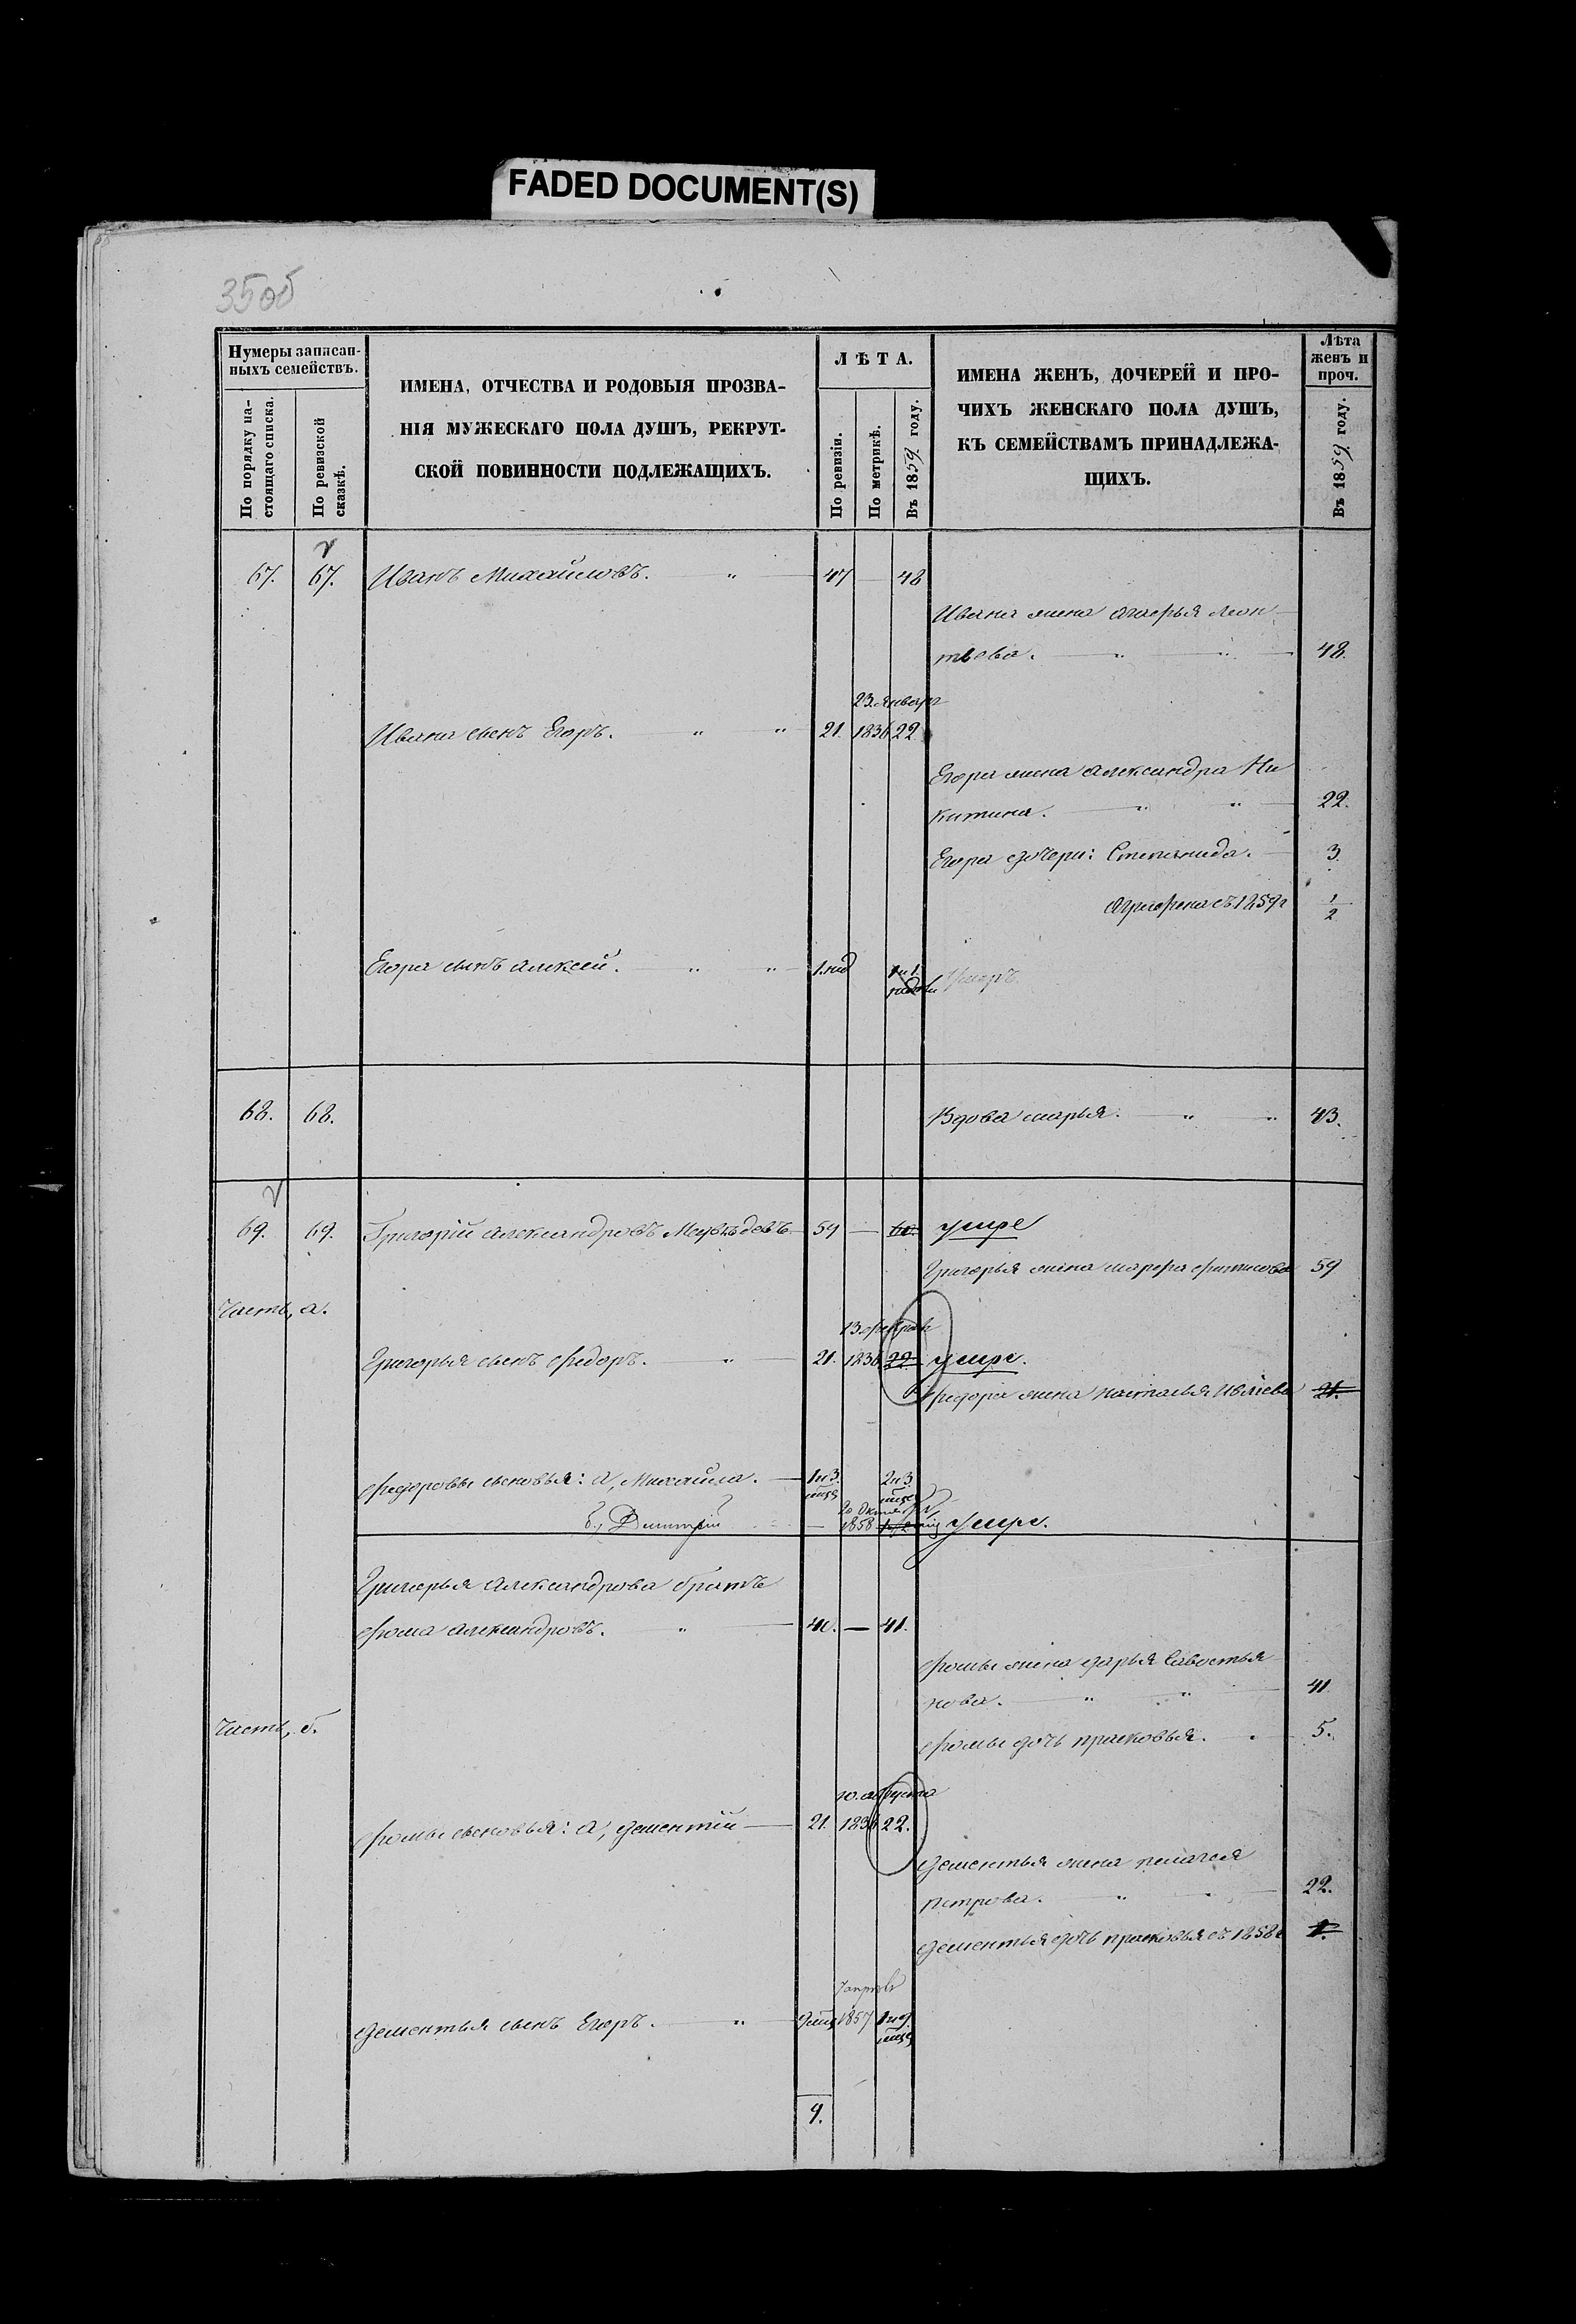 FADED DOCUMENT(S)
35об
Нумеры записан-
ныхъ семействъ.
По порядку на-
стоящаго списка.
По ревизской
сказкѣ.
ИМЕНА, ОТЧЕСТВА И РОДОВЫЯ ПРОЗВА-
НІЯ МУЖЕСКАГО ПОЛА ДУШЪ, РЕКРУТ-
СКОЙ ПОВИННОСТИ ПОДЛЕЖАЩИХЪ.
ЛѢТА.
По ревизіи.
По метрикѣ.
Въ 1859 году.
ИМЕНА ЖЕНЪ, ДОЧЕРЕЙ И ПРО-
ЧИХЪ ЖЕНСКАГО ПОЛА ДУШЪ,
КЪ СЕМЕЙСТВАМЪ ПРИНАДЛЕЖА-
ЩИХЪ.
Лѣта
женъ и
проч.
Въ 1859 году.
67. 67. Иванъ Михайловъ. " 47 — 48
Ивана жена Агафья Леон
тьева. " " 48.
23. января
Ивана сынъ Егоръ. " " 21. 1836 22
Егора жена Александра Ни
китина. " " 22.
Егора дочери: Степанида. 3
Аграфена съ 1859г 1/2
Егора сынъ Алексей. " " 1.нид Умеръ
68. 68. Вдова Марья. " " 43.
69. 69. Григорій Александровъ Медвѣдевъ 59 — 60. умре
Григорья жена Марфа 59
Часть, а.
13. февраля
Григорья сынъ Федоръ. " 21. 1836 22 умре.
Федора жена Настасья 21.
Федоровы сыновья: а, Михайла. 1 и 3 мцв 2 и 3 мцв
20 Октя.
б, Димитрій — 1858 умре.
Григорья Александрова братъ
Фома Александровъ. " 40. — 41.
Фомы жена Дарья Савостья
нова. " " 41
Часть, б.
Фомы дочь Прасковья. 5.
10. августа
Фомы сыновья: а, Дементій 21. 1836 22.
Дементья жена Пелагея
Петрова. " " 22.
Дементья дочь Прасковья съ 1858г 1.
7 апрѣля
Дементья сынъ Егоръ. " 9 мцв 1857 1 и 9 мцв
9.